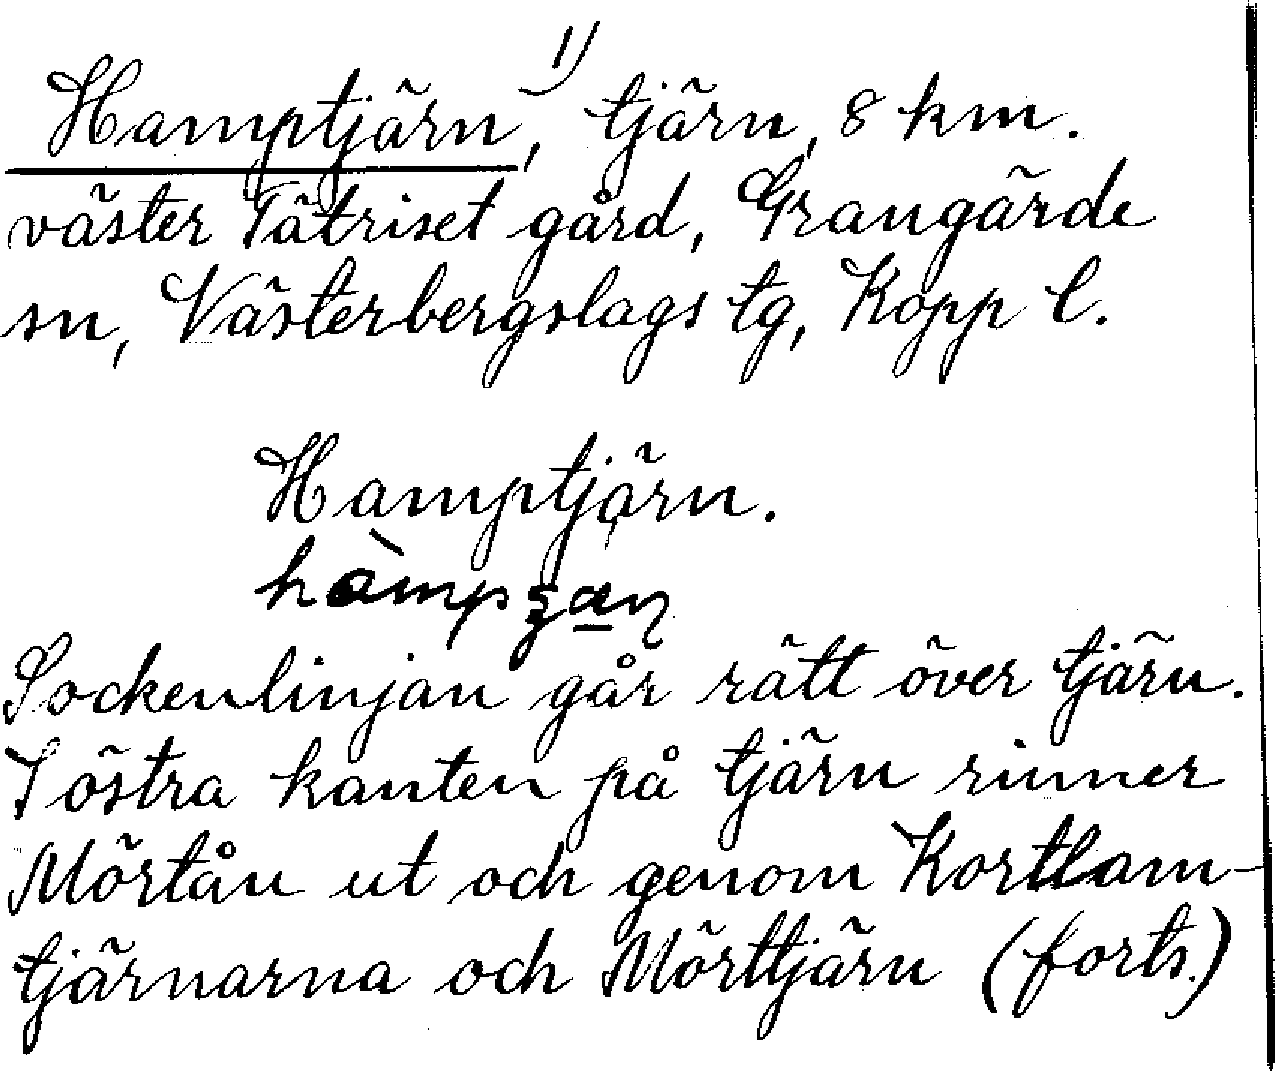 Hamptjärn,¹⁾ tjärn, 8 km.
väster Tätriset gård, Grangärde
sn, Västerbergslags tg, Kopp l.
Hamptjärn.
Sockenlinjan går rätt över tjärn.
I östra kanten på tjärn rinner
Mörtån ut och genom Kortlam-
tjärnarna och Mörttjärn (forts.)